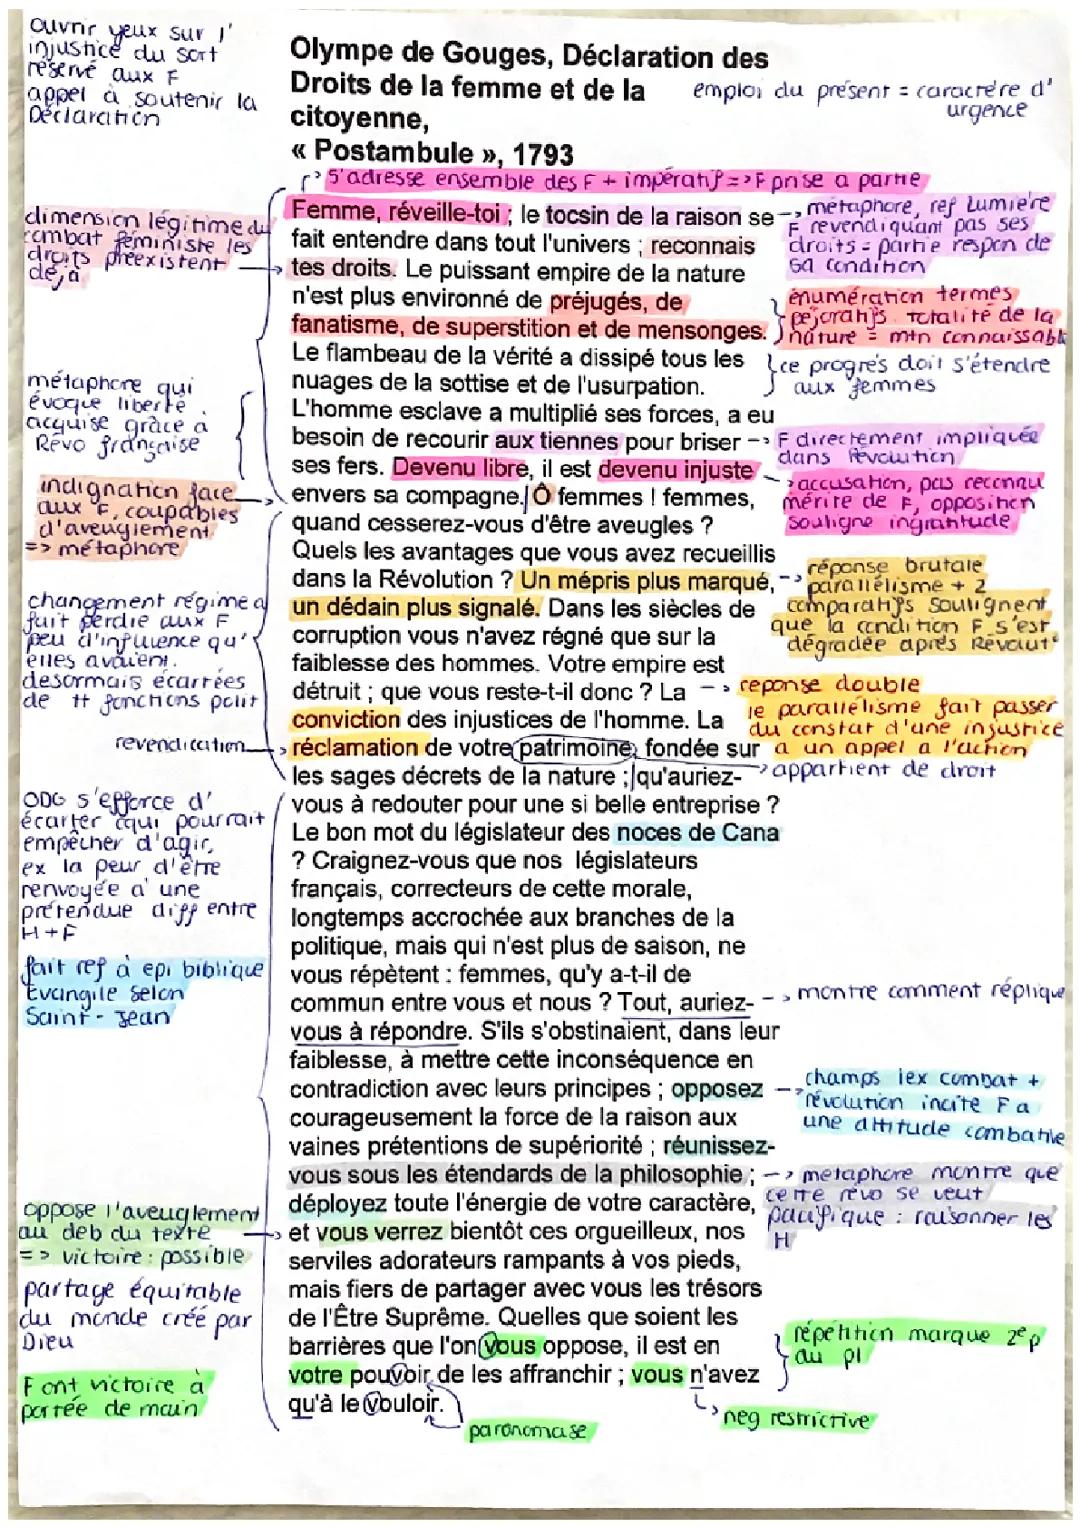 ouvrir yeux sur l'
injustice du sort
réservé aux F
appel à soutenir la
Déclaration
Olympe de Gouges, Déclaration des
Droits de la femme et de la
citoyenne,
« Postambule », 1793
emploi du présent = caractère d'
urgence
s'adresse ensemble des F + impératif => F prise a partie
Femme, réveille-toi ; le tocsin de la raison se
fait entendre dans tout l'univers ; reconnais
tes droits. Le puissant empire de la nature
n'est plus environné de préjugés, de
fanatisme, de superstition et de mensonges.
Le flambeau de la vérité a dissipé tous les
nuages de la sottise et de l'usurpation.
L'homme esclave a multiplié ses forces, a eu
besoin de recourir aux tiennes pour briser
ses fers. Devenu libre, il est devenu injuste
envers sa compagne. Ô femmes ! femmes,
quand cesserez-vous d'être aveugles ?
Quels les avantages que vous avez recueillis
dans la Révolution ? Un mépris plus marqué,
un dédain plus signalé. Dans les siècles de
corruption vous n'avez régné que sur la
faiblesse des hommes. Votre empire est
détruit ; que vous reste-t-il donc ? La
conviction des injustices de l'homme. La
réclamation de votre patrimoine, fondée sur
les sages décrets de la nature ; qu'auriez-
vous à redouter pour une si belle entreprise ?
Le bon mot du législateur des noces de Cana
? Craignez-vous que nos législateurs
français, correcteurs de cette morale,
longtemps accrochée aux branches de la
politique, mais qui n'est plus de saison, ne
vous répètent : femmes, qu'y a-t-il de
commun entre vous et nous ? Tout, auriez-
vous à répondre. S'ils s'obstinaient, dans leur
faiblesse, à mettre cette inconséquence en
contradiction avec leurs principes ; opposez
courageusement la force de la raison aux
vaines prétentions de supériorité ; réunissez-
vous sous les étendards de la philosophie ;
déployez toute l'énergie de votre caractère,
et vous verrez bientôt ces orgueilleux, nos
serviles adorateurs rampants à vos pieds,
mais fiers de partager avec vous les trésors
de l'Être Suprême. Quelles que soient les
barrières que l'on vous oppose, il est en
votre pouvoir de les affranchir ; vous n'avez
qu'à le vouloir.
dimension légitime du
combat féministe les
droits préexistent
déjà
métaphore qui
évoque liberté
acquise grâce a
Révo française
indignation face
aux F, coupables
d'aveuglement
=> métaphore
changement régime a
fait perdre aux F
peu d'influence qu'
elles avaient.
desormais écartées
de tt fonctions polit
revendication
ODG s'efforce d'
écarter cqui pourrait
empêcher d'agir,
ex la peur d'être
renvoyée a une
prétendue diff entre
H+F
fait ref à epi biblique
Evangile selon
Saint-Jean
oppose l'aveuglement
au deb du texte
=> victoire : possible
partage équitable
du monde créé par
Dieu
F ont victoire à
portée de main
métaphore, ref Lumière
F revendiquant pas ses
droits = partie respon de
sa condition
énumération termes
péjoratifs totalité de la
nature = mtn connaissable
ce progrès doit s'étendre
aux femmes
F directement impliquée
dans Révolution
accusation, pas reconnu
mérite de F, opposition
souligne ingratitude
réponse brutale
parallélisme + 2
comparatifs soulignent
que la condition F s'est
dégradée après Révolut°
reponse double
le parallélisme fait passer
du constat d'une injustice
a un appel a l'action
appartient de droit
montre comment réplique
champs lex combat +
révolution incite F a
une attitude combative
metaphore montre que
cette révo se veut
pacifique : raisonner les
H
répétition marque 2e p
au pl
neg restrictive
paronomase